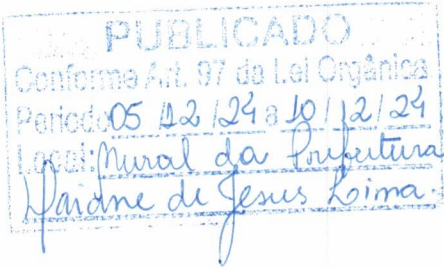 PUBLICADO
Conforme Art. 97 da Lei Orgânica
Período 05/12/24 a 10/12/24
Local: Mural da Prefeitura
de Jesus Lima.